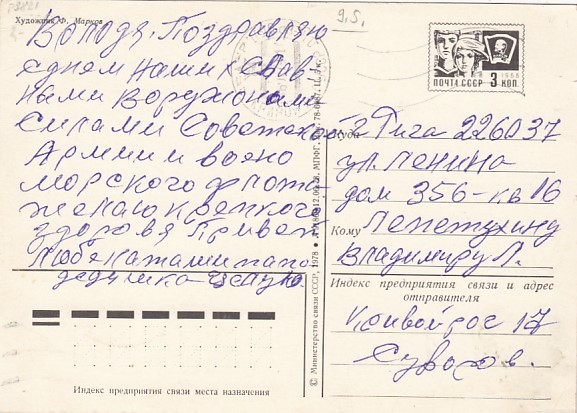 Художник Ф. Марков
9.5.
Володя, Поздравляю
с днем наших слав
ными Воружонами
Силами Советской
Армии и воено
морского флота
желаю крепкого
здоровя Привет
Любе Наташи папо
дедушка
ПОЧТА СССР 3 КОП.
1966
Куда г Рига 226037
ул. Ленина
дом 356-кв 16
Кому Лепетухину
Владимиру Л.
Индекс предприятия связи и адрес
отправителя
Кривой рог 17
Суворов.
© Министерство связи СССР, 1978
Индекс предприятия связи места назначения